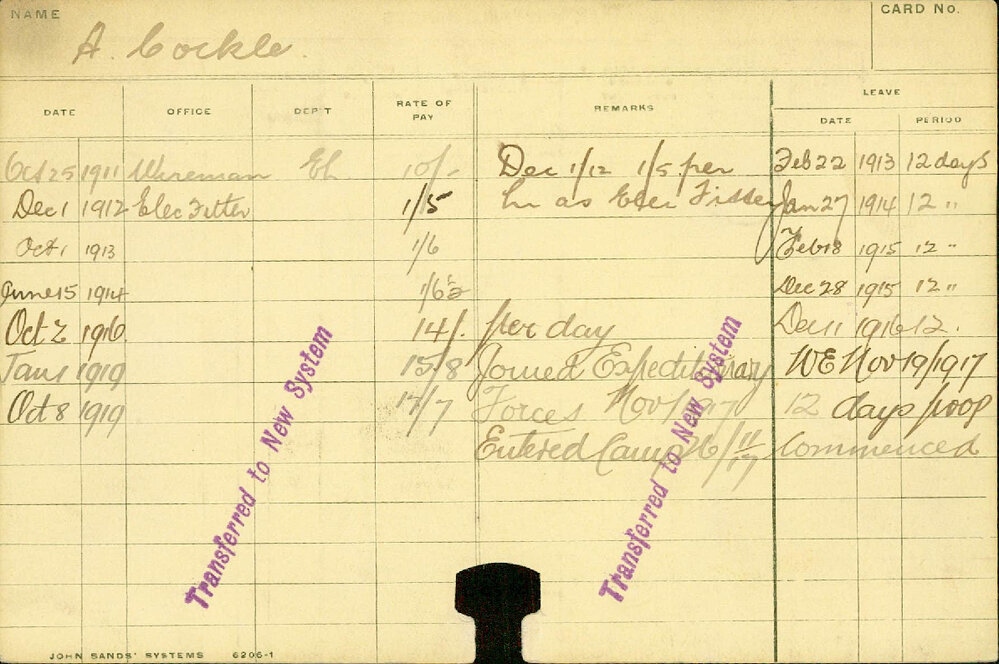 NAME
CARD No.
A. Cockle.
DATE OFFICE DEP'T RATE OF PAY REMARKS LEAVE
DATE PERIOD
Oct 25 1911 Wireman El 10/- Dec 1/12 1/5 per Feb 22 1913 12 days
Dec 1 1912 Elec Fitter 1/5 hr as Elec Fitter Jan 27 1914 12 "
Oct 1 1913 1/6 Feb 18 1915 12 "
June 15 1914 1/6½ Dec 28 1915 12 "
Oct 2 1916 14/. per day Dec 11 1916 12.
Jan 1 1919 15/8 Joined Expeditionary WE Nov 19/1917
Oct 8 1919 17/7 Forces Nov/1917 12 days
Entered Camp 26/11/17 Commenced
Transferred to New System
Transferred to New System
JOHN SANDS' SYSTEMS 6206-1